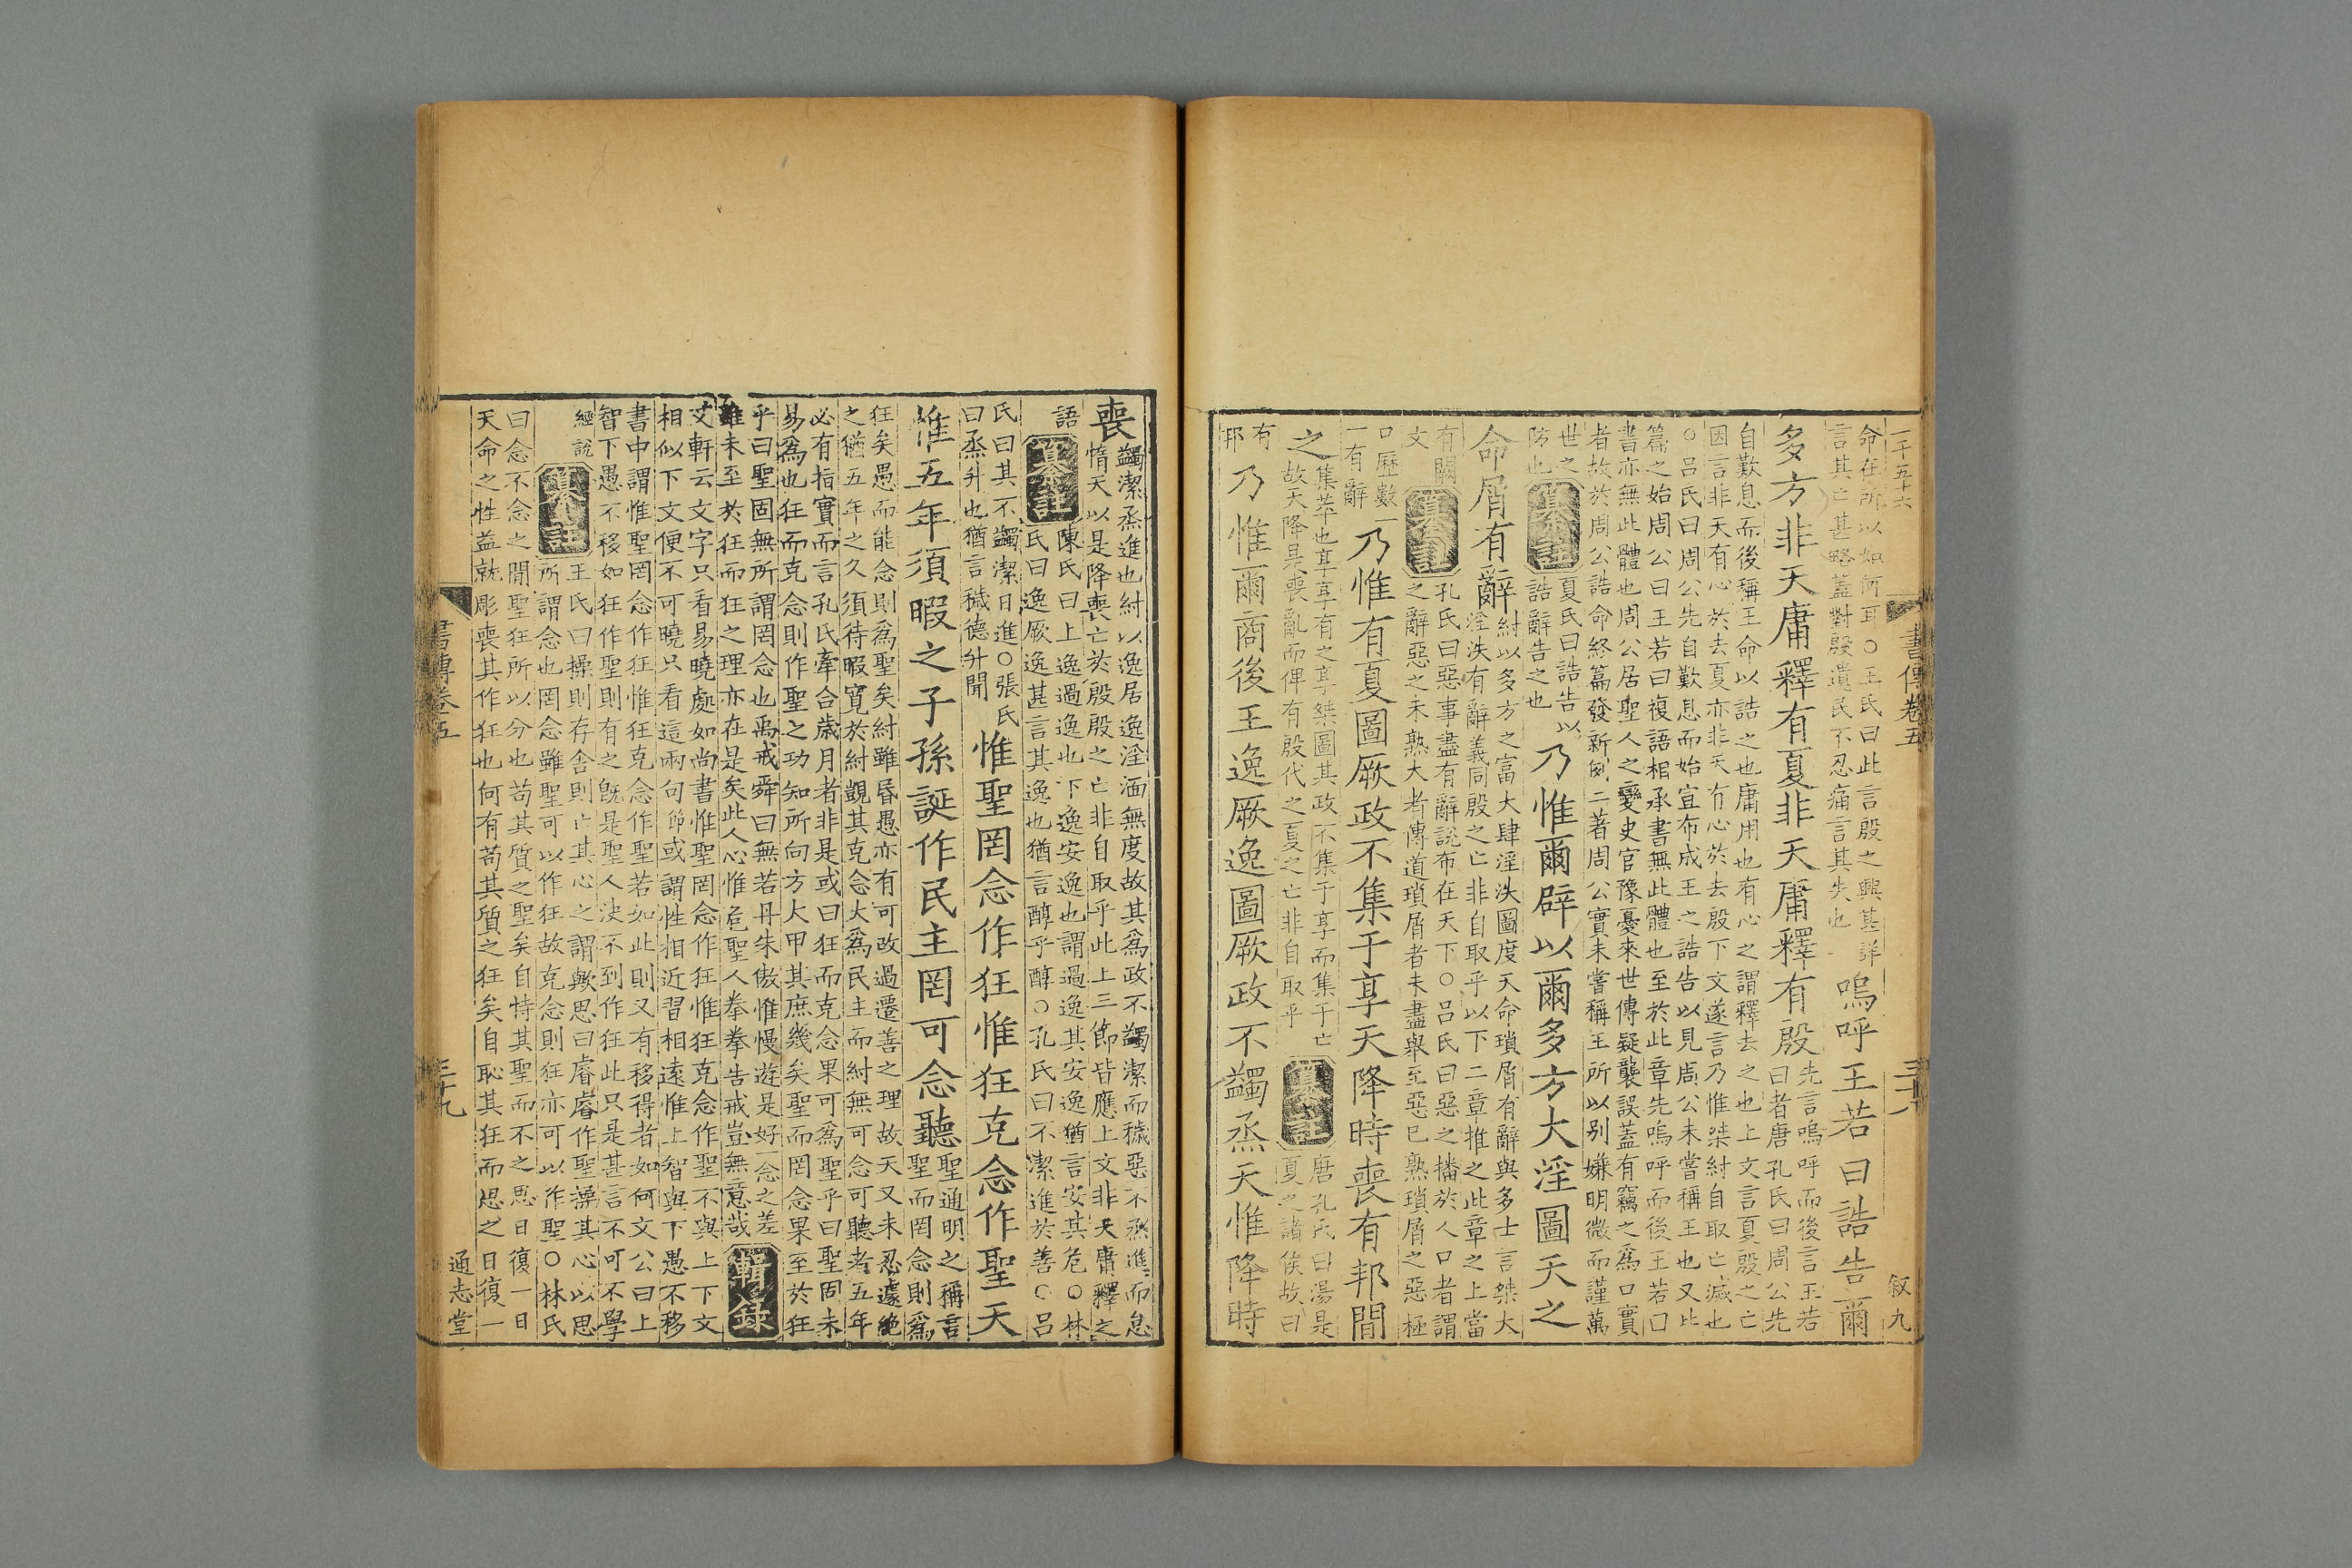 一千五十六
書傳卷五
三十八
叙九
命在所以如何耳○王氏曰此言殷之興甚詳
言其亡甚略蓋對殷遺民不忍痛言其失也
嗚呼王若曰誥告爾
多方非天庸釋有夏非天庸釋有殷
先言嗚呼而後言王若
曰者唐孔氏曰周公先
自歎息而後稱王命以誥之也庸用也有心之謂釋去之也上文言夏殷之亡
因言非天有心於去夏亦非天有心於去殷下文遂言乃惟桀紂自取亡滅也
○呂氏曰周公先自歎息而始宣布成王之誥告以見周公未嘗稱王也又此
篇之始周公曰王若曰複語相承書無此體也至於此章先嗚呼而後王若曰
書亦無此體也周公居聖人之變史官豫憂來世傳疑襲誤蓋有竊之為口實
者故於周公誥命終篇發新例二著周公實未嘗稱王所以别嫌明微而謹萬
世之
防也
纂註
夏氏曰誥告以
誥辭告之也
乃惟爾辟以爾多方大淫圖天之
命屑有辭
紂以多方之富大肆淫泆圖度天命瑣屑有辭與多士言桀大
淫泆有辭義同殷之亡非自取乎以下二章推之此章之上當
有闕
文
纂註
孔氏曰惡事盡有辭說布在天下○呂氏曰惡之播於人口者謂
之辭惡之未熟大者傳道瑣屑者未盡舉至惡已熟瑣屑之惡極
口歷數一
一有辭
乃惟有夏圖厥政不集于享天降時喪有邦間
之
集萃也享享有之享桀圖其政不集于享而集于亡
故天降是喪亂而俾有殷代之夏之亡非自取乎
纂註
唐孔氏曰湯是
夏之諸侯故曰
有
邦
乃惟爾商後王逸厥逸圖厥政不蠲烝天惟降時
喪
蠲潔烝進也紂以逸居逸淫湎無度故其爲政不蠲潔而穢惡不烝進而怠
惰天以是降喪亡於殷殷之亡非自取乎此上三節皆應上文非天庸釋之
語
纂註
陳氏曰上逸過逸也下逸安逸也謂過逸其安逸猶言安其危○林
氏曰逸厥逸甚言其逸也猶言醇乎醇○孔氏曰不潔進於善○呂
氏曰其不蠲潔日進○張氏
曰烝升也猶言穢德升聞
惟聖罔念作狂惟狂克念作聖天
惟五年須暇之子孫誕作民主罔可念聽
聖通明之稱言
聖而罔念則爲
狂矣愚而能念則爲聖矣紂雖昏愚亦有可改過遷善之理故天又未忍遽絶
之猶五年之久須待暇寬於紂覬其克念大爲民主而紂無可念可聽者五年
必有指實而言孔氏牽合歲月者非是或曰狂而克念果可爲聖乎曰聖固未
易爲也狂而克念則作聖之功知所向方大甲其庶幾矣聖而罔念果至於狂
乎曰聖固無所謂罔念也禹戒舜曰無若丹朱傲惟慢遊是好一念之差
雖未至於狂而狂之理亦在是矣此人心惟危聖人拳拳告戒豈無意哉
輯錄
艾軒云文字只看易曉處如尚書惟聖罔念作狂惟狂克念作聖不與上下文
相似下文便不可曉只看這兩句節或謂性相近習相遠惟上智與下愚不移
書中謂惟聖罔念作狂惟狂克念作聖若如此則又有移得者如何文公曰上
智下愚不移如狂作聖則有之旣是聖人决不到作狂此只是甚言不可不學
經說
纂註
王氏曰操則存舍則亡其心之謂歟思曰睿睿作聖操其心以思
所謂念也罔念雖聖可以作狂故克念則狂亦可以作聖○林氏
曰念不念之間聖狂所以分也苟其質之聖矣自恃其聖而不之思日復一日
天命之性益就彫喪其作狂也何有苟其質之狂矣自恥其狂而思之日復一
書傳卷五
三十九
通志堂